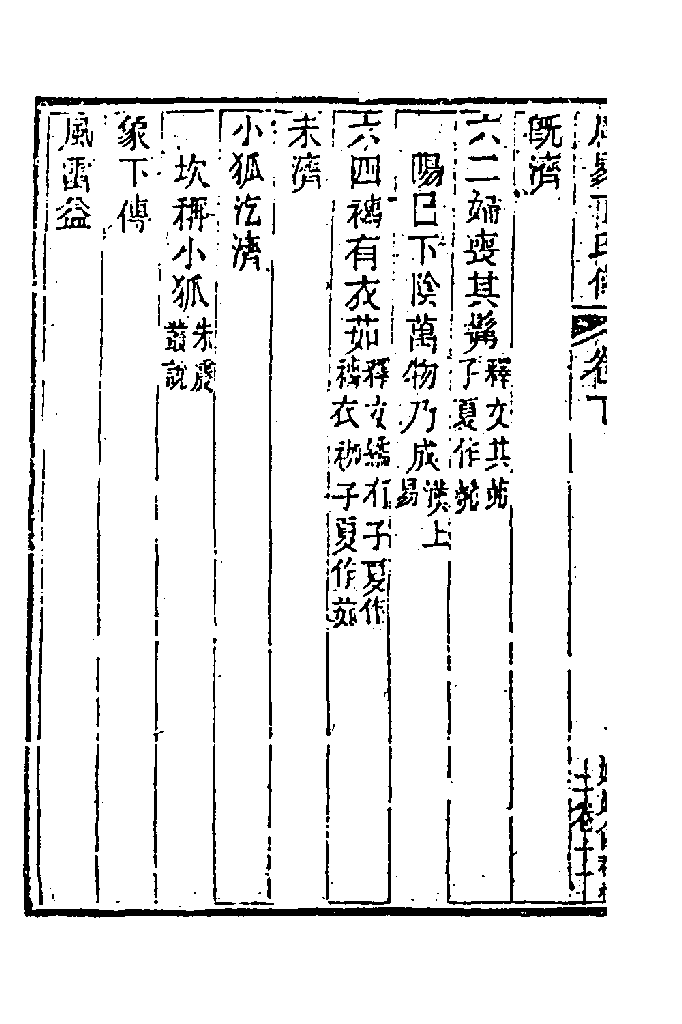 氏傳 卷下
既濟
六二婦喪其髴釋文其茀子夏作髴
陽已下陰萬物乃成漢上易
六四襦有衣茹釋文繻有子夏作襦衣袽子夏作茹
未濟
小狐汔濟
坎稱小狐朱震叢說
象下傳
風雷益